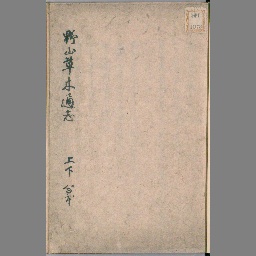 野山草木通志
上下 合本